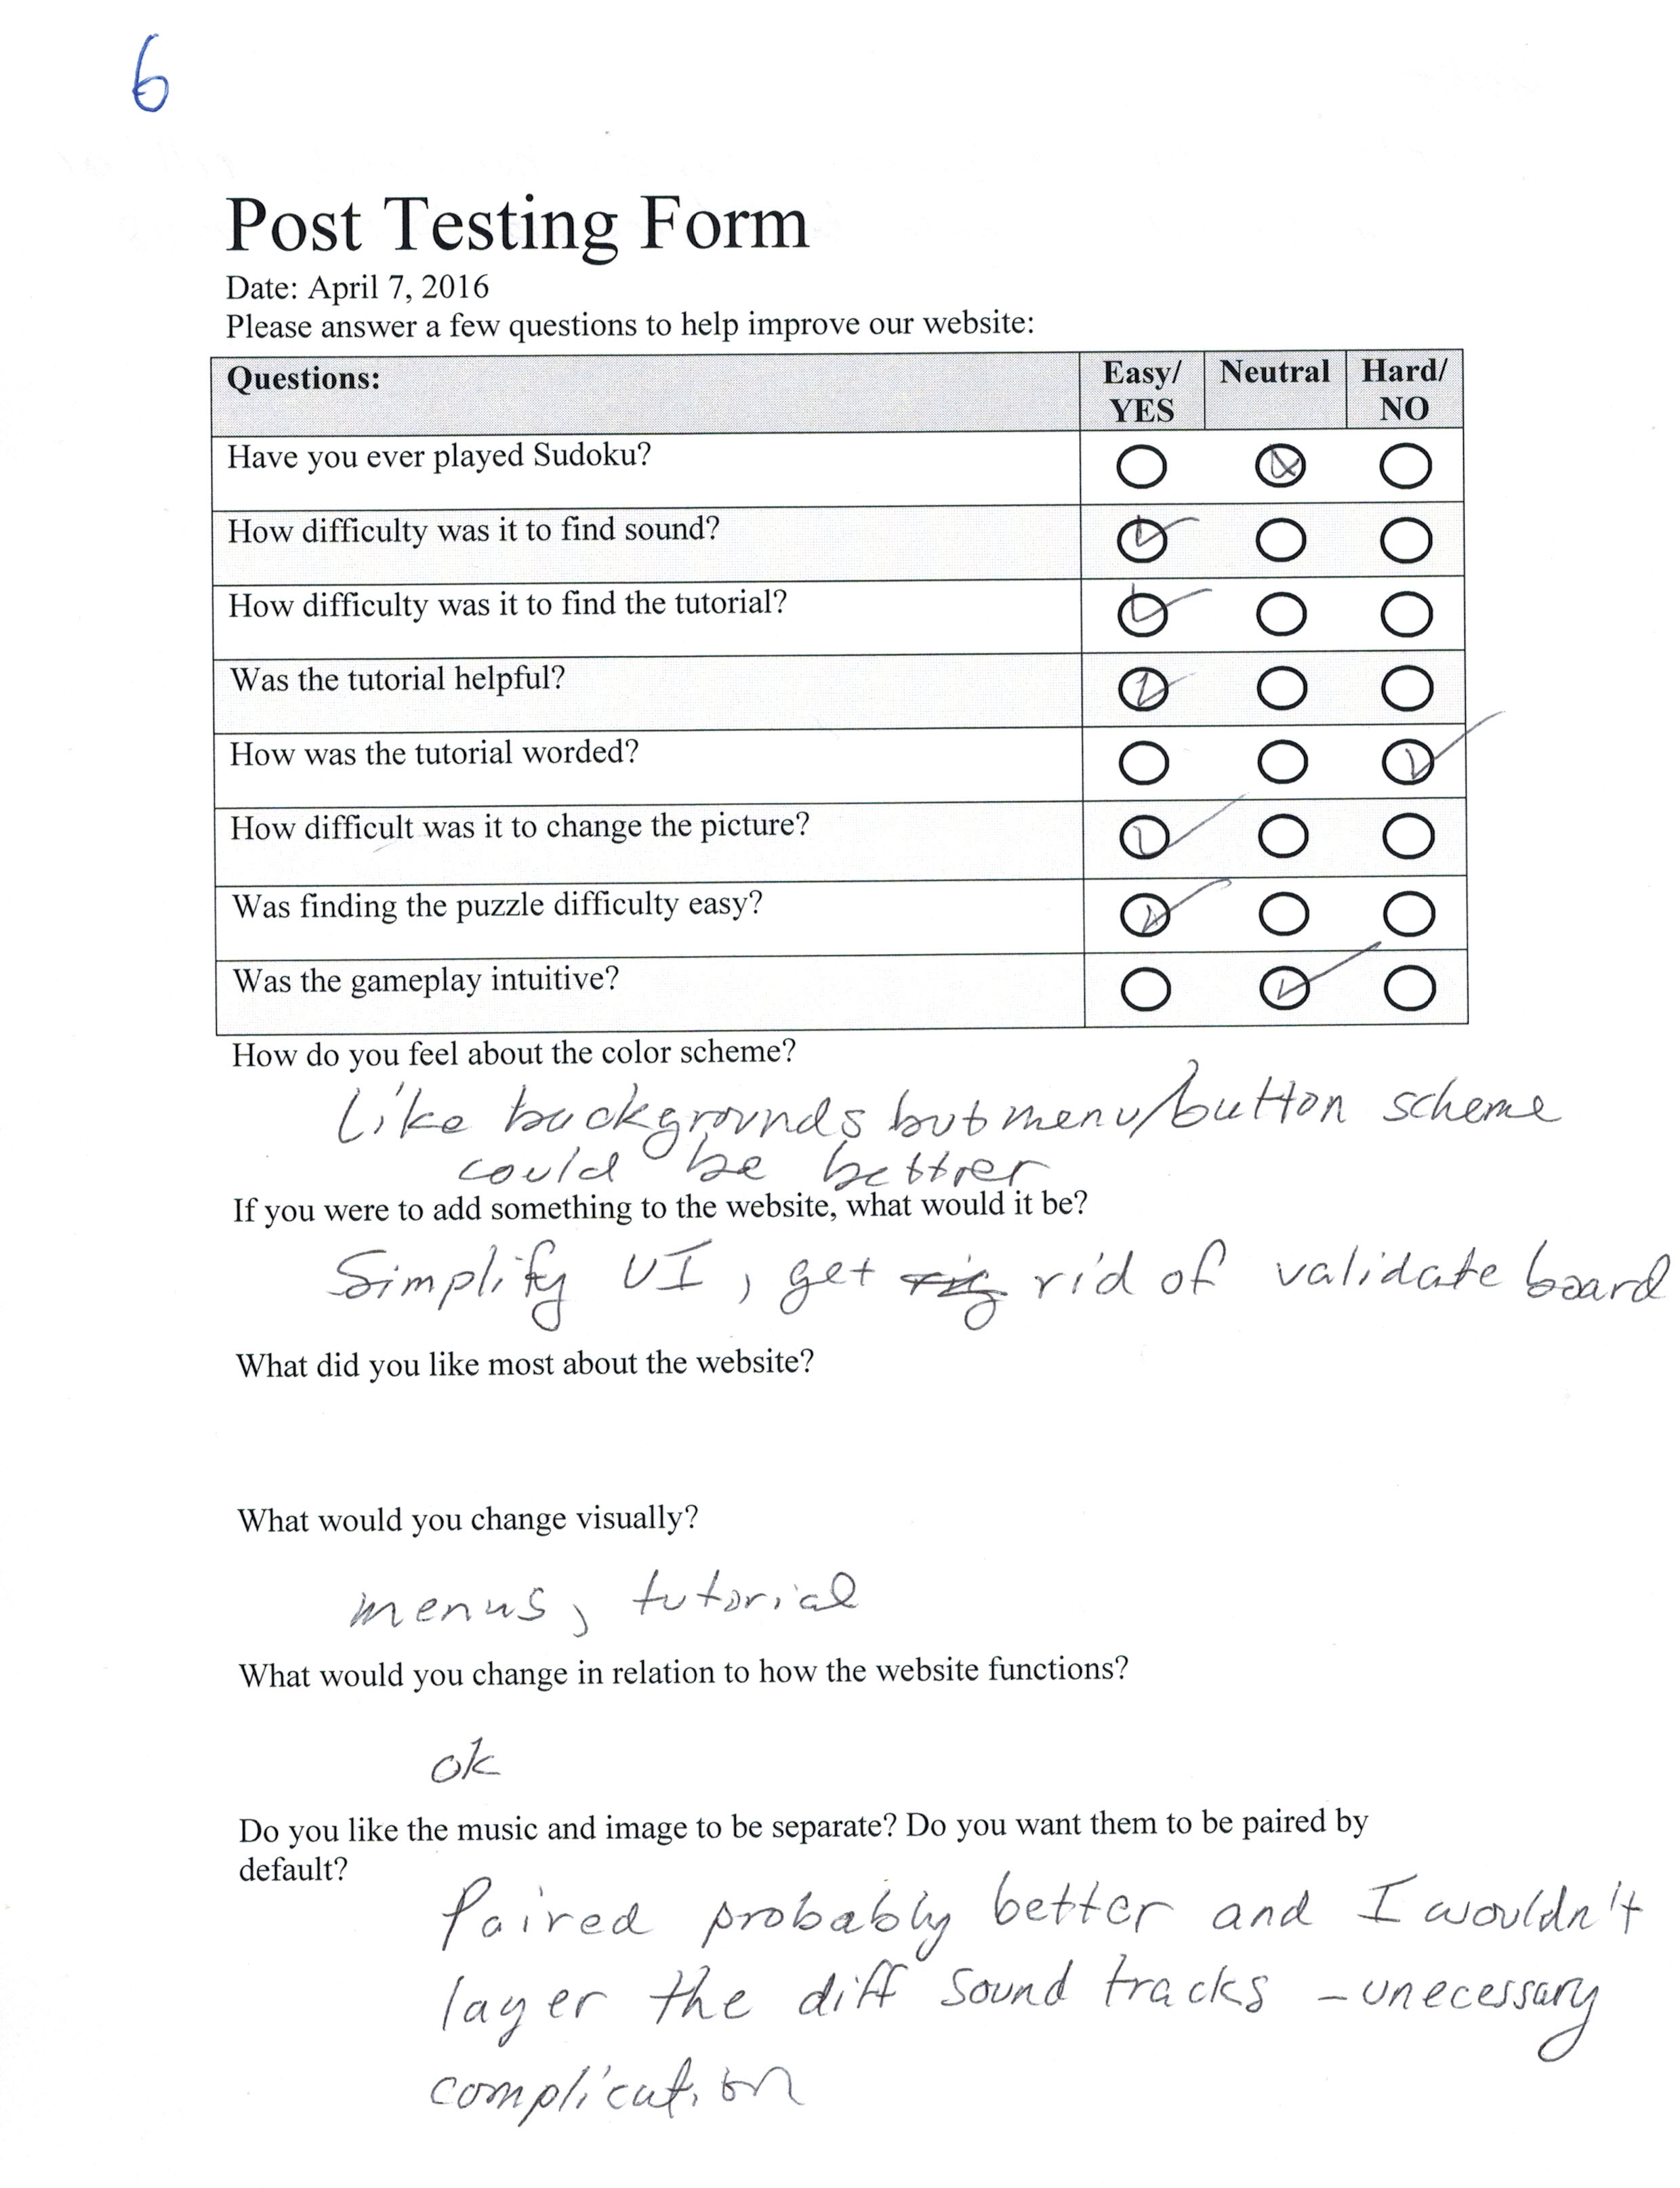 6
Post Testing Form
Date: April 7, 2016
Please answer a few questions to help improve our website:
Questions: Easy/ YES Neutral Hard/ NO
Have you ever played Sudoku?
How difficulty was it to find sound?
How difficulty was it to find the tutorial?
Was the tutorial helpful?
How was the tutorial worded?
How difficult was it to change the picture?
Was finding the puzzle difficulty easy?
Was the gameplay intuitive?
How do you feel about the color scheme?
Like backgrounds but menu/button scheme
could be better
If you were to add something to the website, what would it be?
Simplify UI, get rid of validate board
What did you like most about the website?
What would you change visually?
menus, tutorial
What would you change in relation to how the website functions?
ok
Do you like the music and image to be separate? Do you want them to be paired by
default?
Paired probably better and I wouldn't
layer the diff sound tracks - unecessary
complication